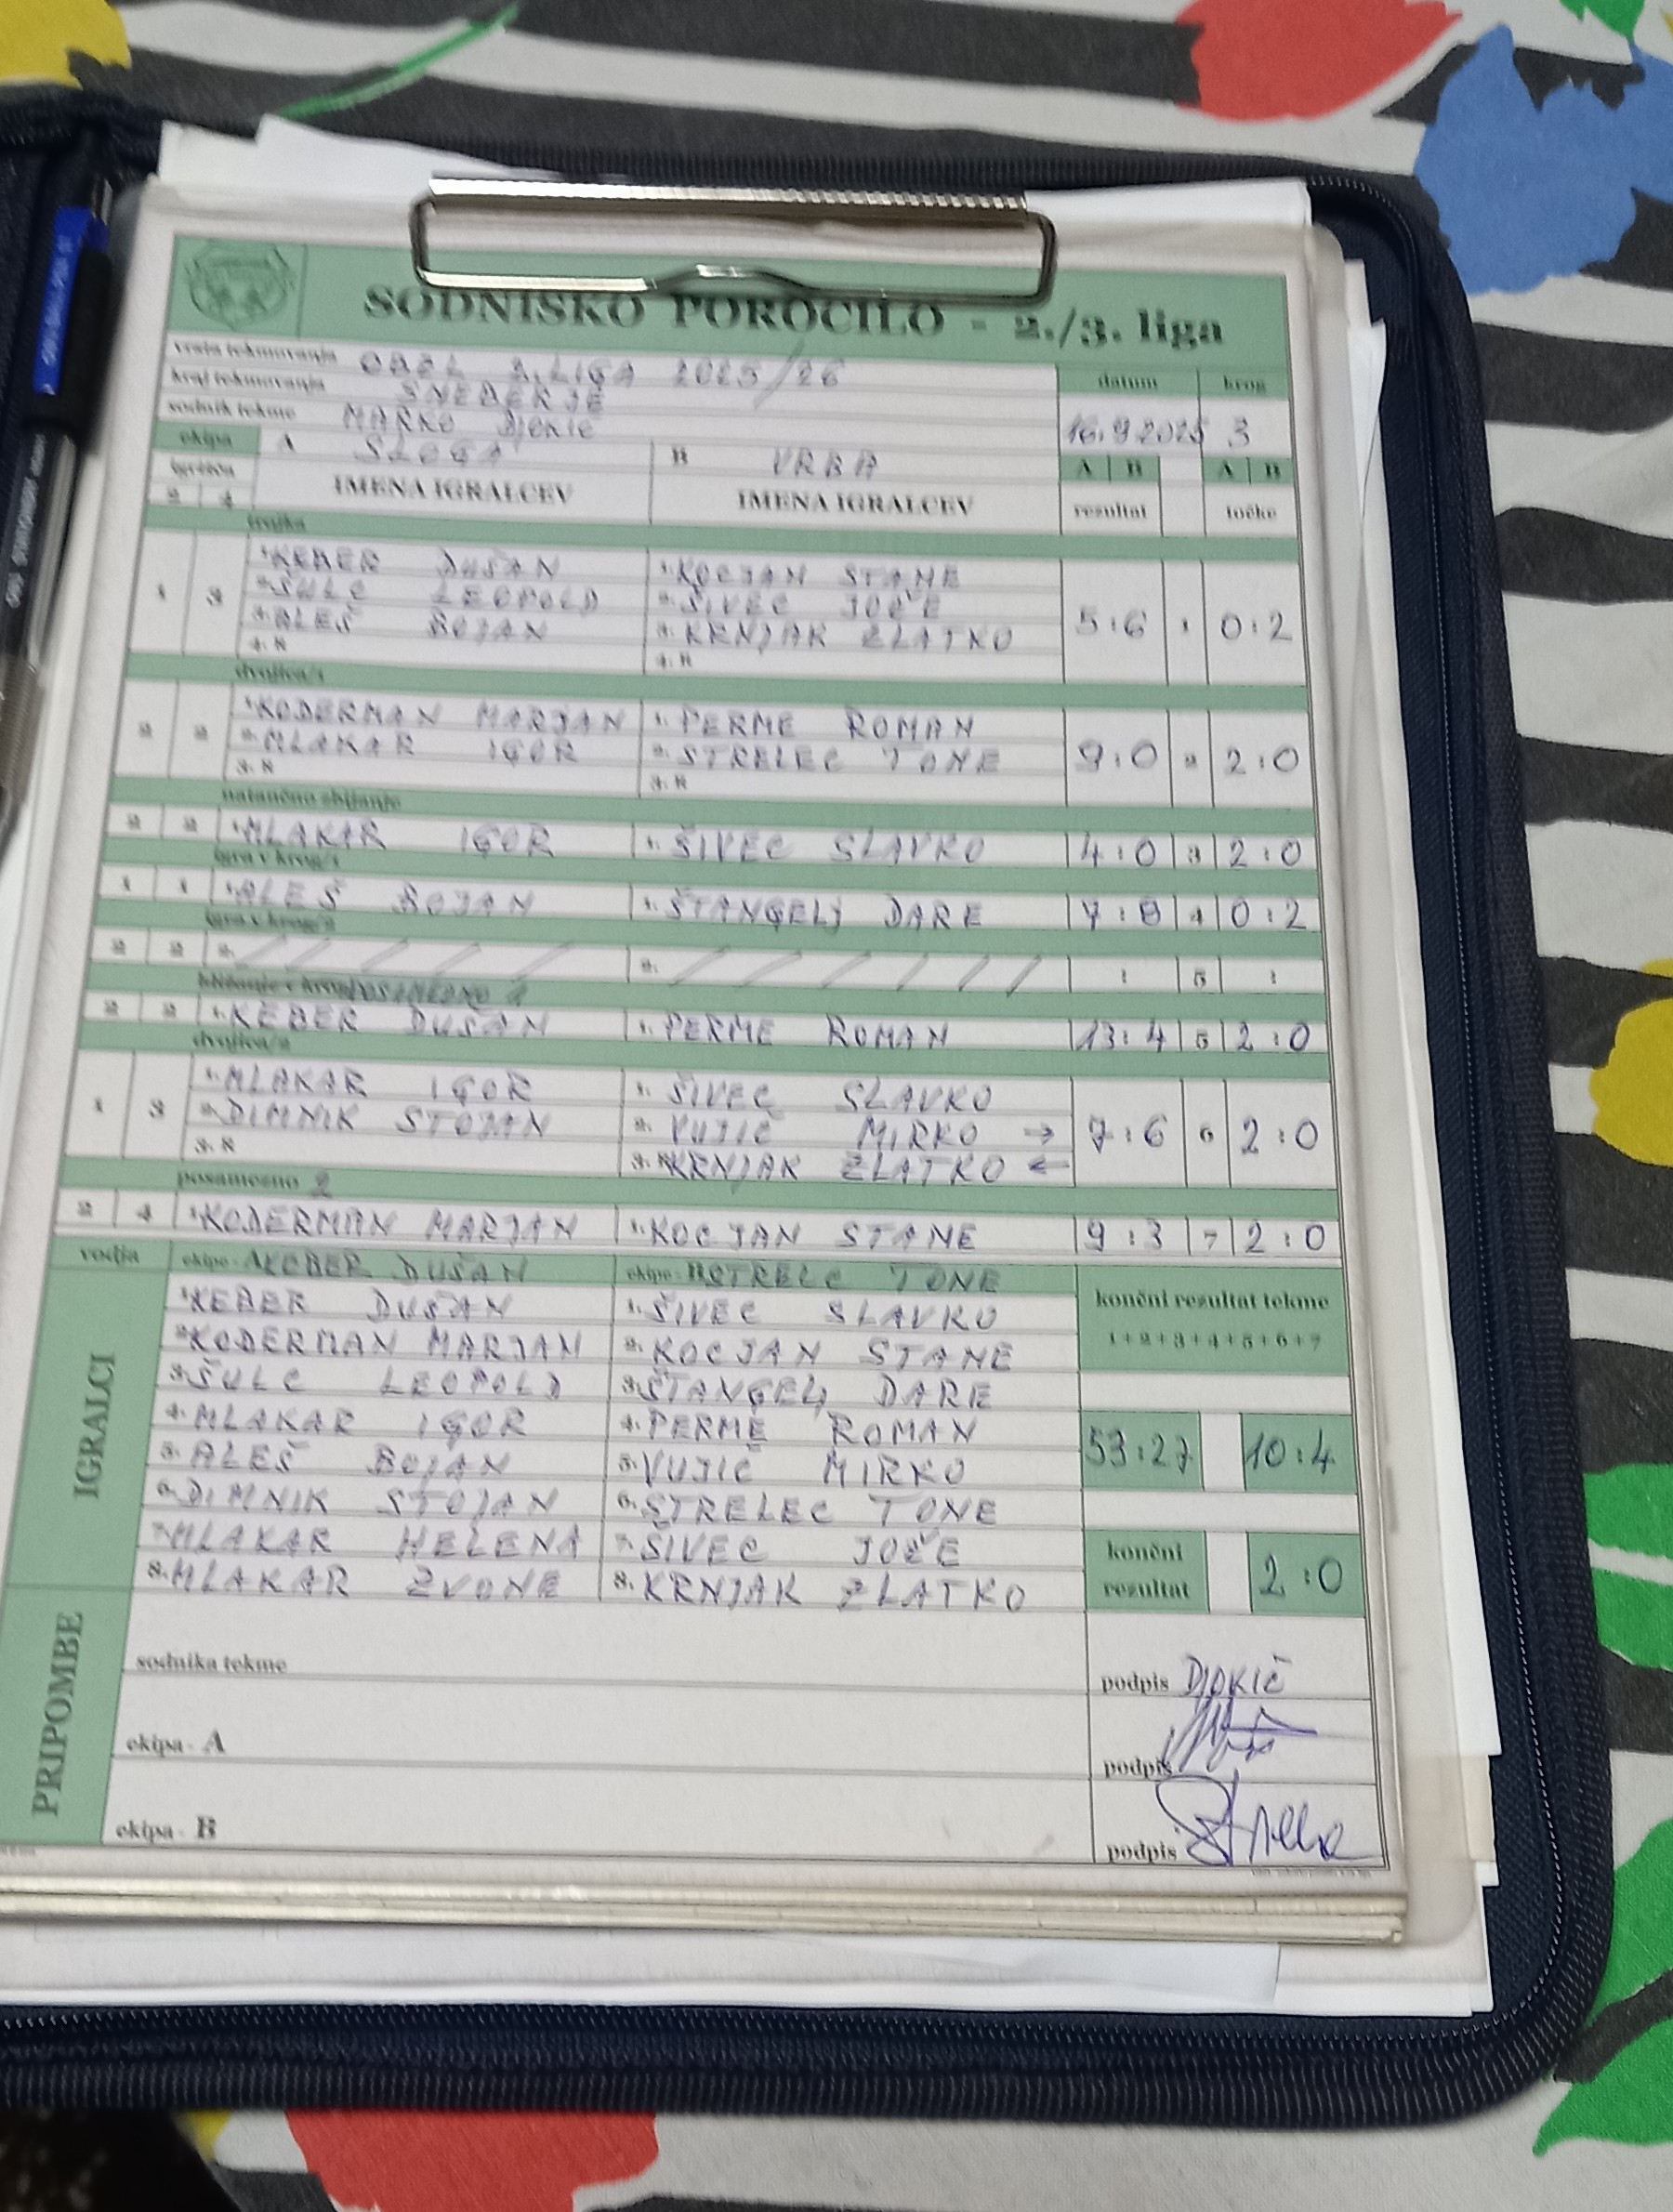 SODNIŠKO POROČILO - 2./3. liga
vrsta tekmovanja OBZL 2.LIGA 2025/26
kraj tekmovanja SNEBERJE
sodnik tekme MARKO Djokić
datum krog
16.9.2025 3
ekipa A SLOGA B VRBA
A B A B
igrišča
2 4 IMENA IGRALCEV IMENA IGRALCEV rezultat točke
trojka
1 3
1. KEBER DUŠAN 1. KOCJAN STANE
2. ŠULC LEOPOLD 2. ŠIVEC JOŽE
3. ALEŠ BOJAN 3. KRNJAK ZLATKO
4. R 4. R
5:6 1 0:2
dvojica/1
2 2
1. KODERMAN MARJAN 1. PERME ROMAN
2. MLAKAR IGOR 2. STRELEC TONE
3. R 3. R
9:0 2 2:0
natančno zbijanje
2 2 1. MLAKAR IGOR 1. ŠIVEC SLAVKO 4:0 3 2:0
igra v krog/1
1 1 1. ALEŠ BOJAN 1. ŠTANGELJ DARE 7:8 4 0:2
igra v krog/2
2 2 2. 2. : 5 :
bližanje v krog POSAMEZNO 1
2 2 1. KEBER DUŠAN 1. PERME ROMAN 13:4 5 2:0
dvojica/2
1 3
1. MLAKAR IGOR 1. ŠIVEC SLAVKO
2. DIMNIK STOJAN 2. VUJIČ MIRKO →
3. R 3. R KRNJAK ZLATKO ←
7:6 6 2:0
posamezno 2
2 4 1. KODERMAN MARJAN 1. KOCJAN STANE 9:3 7 2:0
vodja ekipe - A KEBER DUŠAN ekipe - B STRELC TONE
IGRALCI
1. KEBER DUŠAN 1. ŠIVEC SLAVKO
2. KODERMAN MARJAN 2. KOCJAN STANE
3. ŠULC LEOPOLD 3. ŠTANGELJ DARE
4. MLAKAR IGOR 4. PERME ROMAN
5. ALEŠ BOJAN 5. VUJIČ MIRKO
6. DIMNIK STOJAN 6. STRELEC TONE
7. MLAKAR HELENA 7. ŠIVEC JOŽE
8. MLAKAR ZVONE 8. KRNJAK ZLATKO
končni rezultat tekme
1+2+3+4+5+6+7
53:27 10:4
končni rezultat 2:0
PRIPOMBE
sodnika tekme podpis Djokić
ekipa - A podpis
ekipa - B podpis